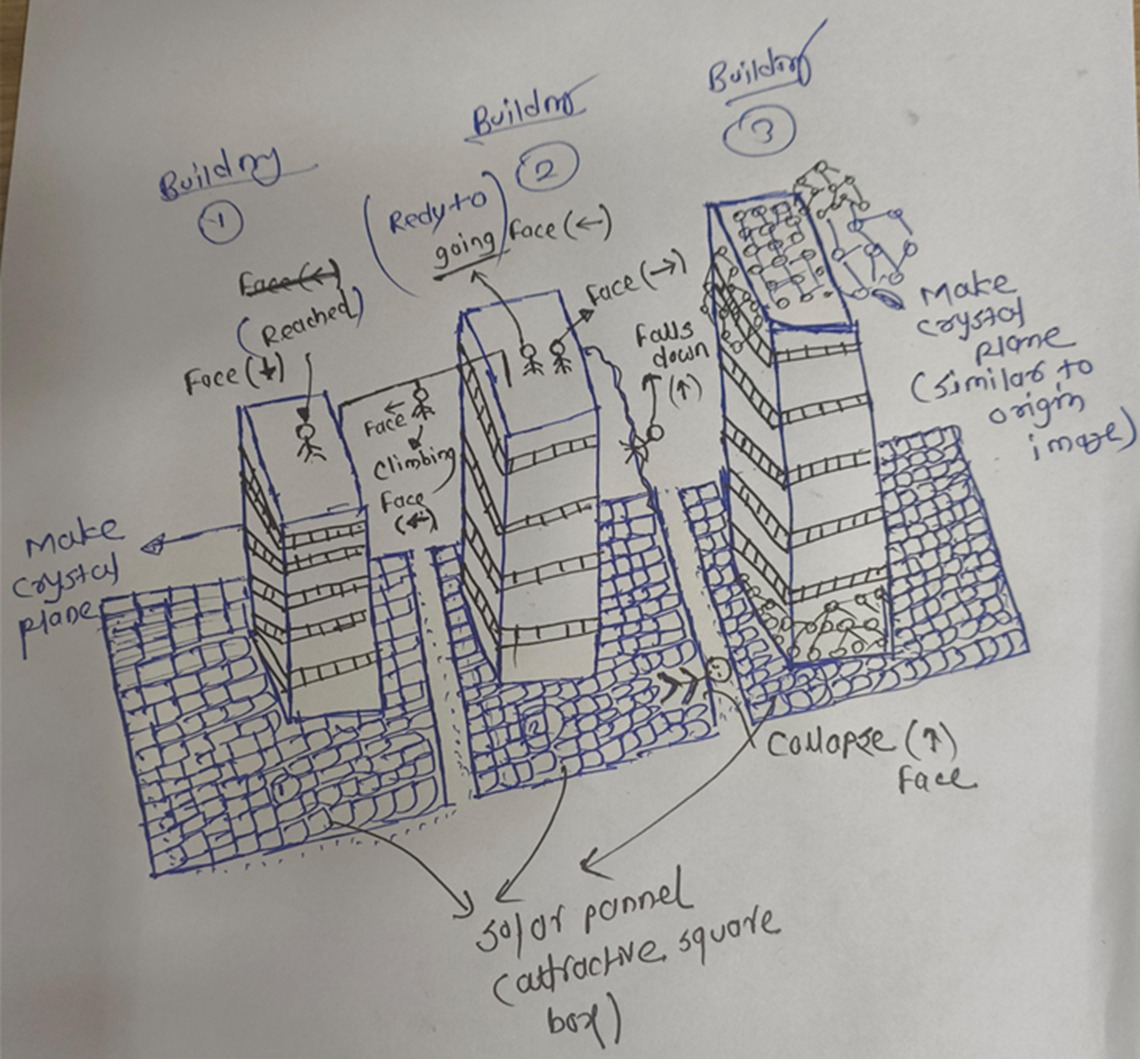 Building
1
Building
2
Building
3
Face (←)
(Reached)
Face (↓)
(Redy to
going)
Face (←)
Face (→)
Falls
down
(↑)
Face ←
Climbing
Face
(←)
Make
crystal
plane
(similar to
origin
imaze)
Make
crystal
plane
1
2
Collapse (↑)
Face
solar pannel
(attractive square
box)